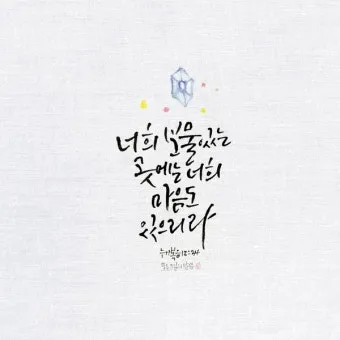 너희 보물있는
곳에는 너희
마음도
있으리라
누가복음12:34